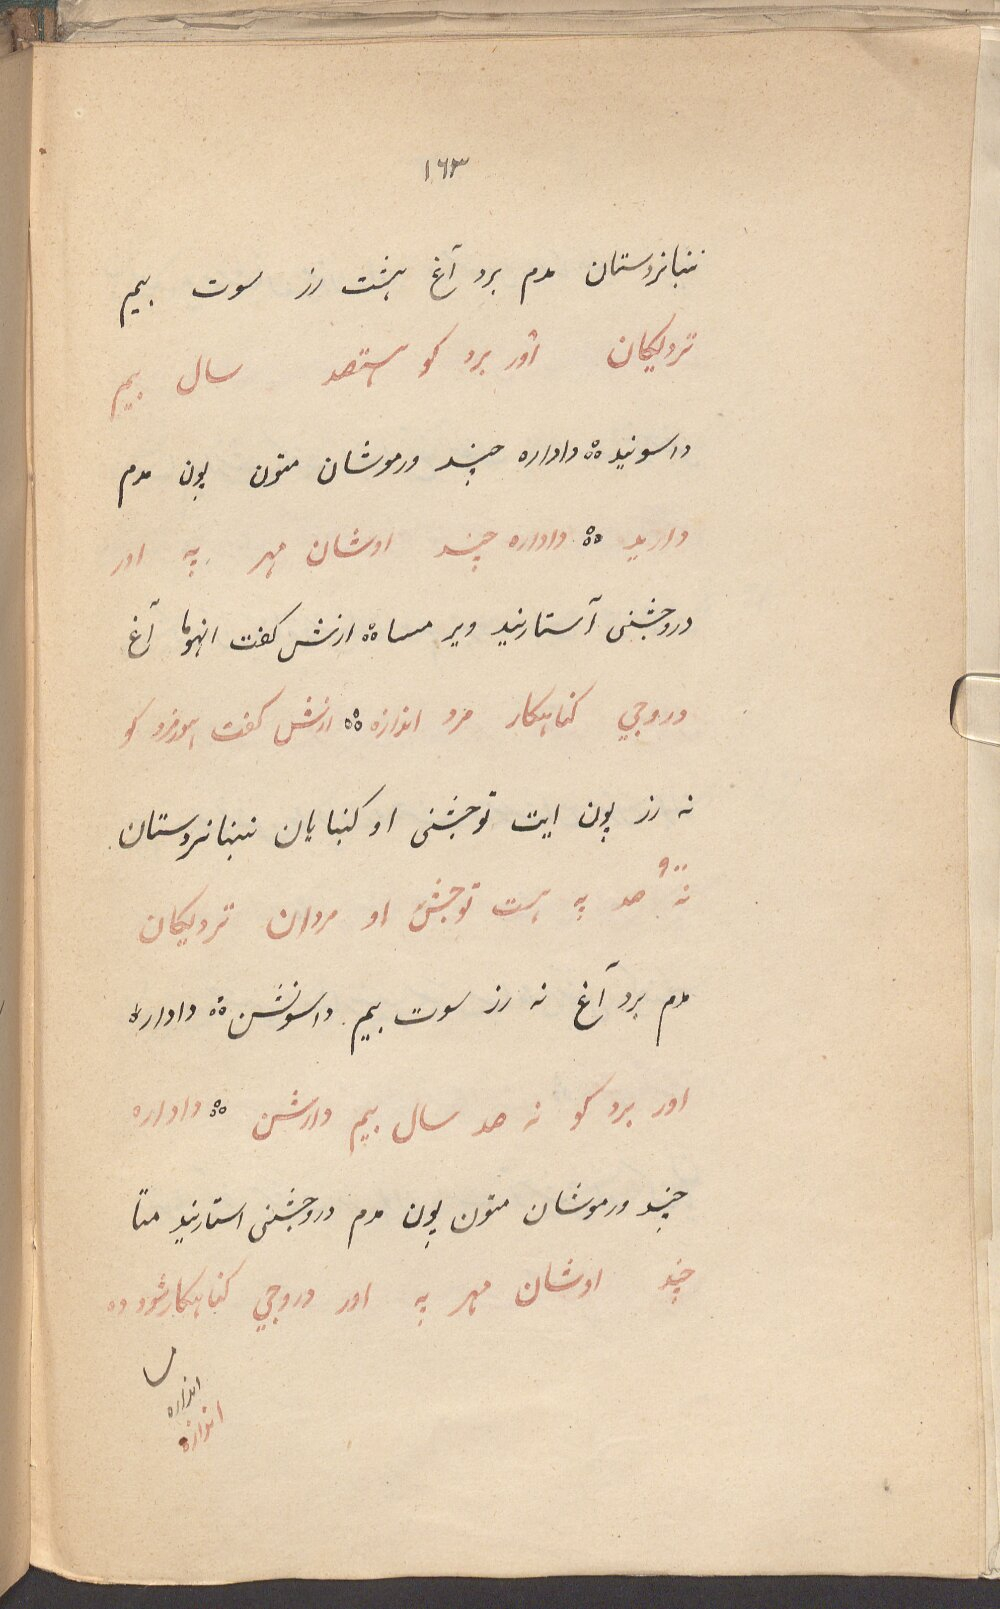 ١٦٣
ننبانزوستان مدم برد آغ هشت رز سوت بیم
نزدیکان اور برد کو هشتصد سال بیم
داسونید ۀ داداره چند ورموشان متون پون مدم
دارید ۀ داداره چند اوشان مهر په اور
دروجشنی آستارنید ویر مساۀ ازنش کفت انهوما آغ
دروجي کناهکار مزد اندازه ۀ ازنش کفت هورمزد کو
نه رز پون ایت توجشنی او کنبایان ننبانزوستان
٩٠٠
نه صد په هست توجشن او مردان نزدیکان
مدم برد آغ نه رز سوت بیم داسونشن ۀ داداره
اور برد کو نه صد سال بیم دارشن ۀ داداره
چند ورموشان متون پون مدم دروجشنی استارنید
چند اوشان مهر په اور دروجي کناهکار شود
اندازه
اندازه